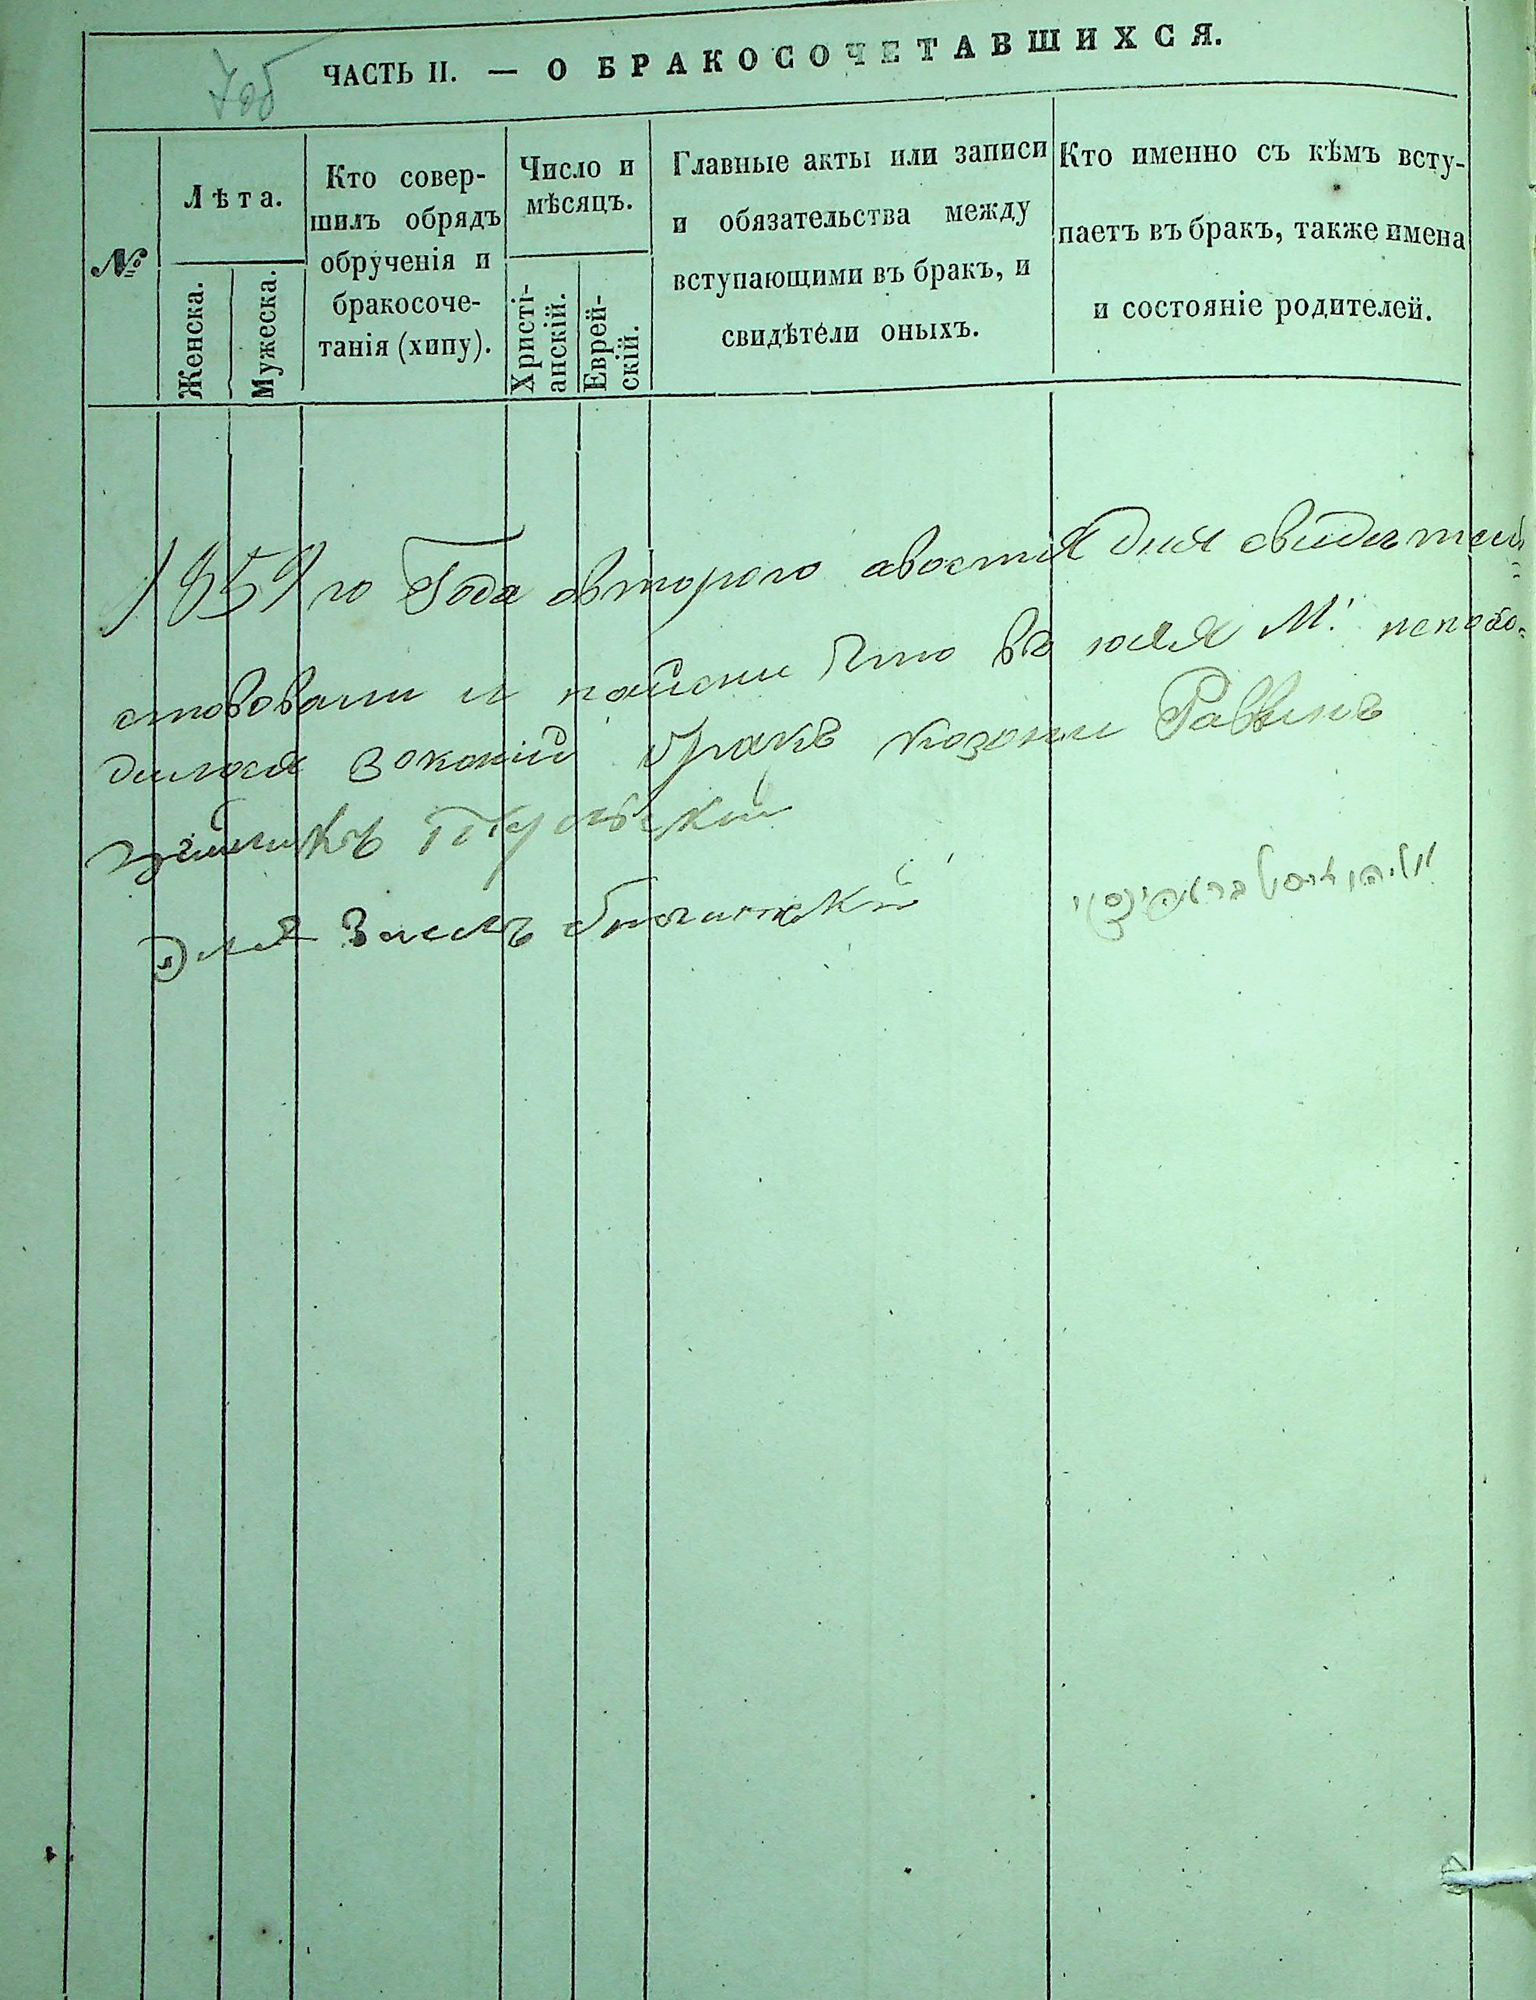 7об
ЧАСТЬ II. — О БРАКОСОЧЕТАВШИХСЯ.
№
Лѣта.
Женска.
Мужеска.
Кто совер-
шилъ обрядъ
обрученія и
бракосоче-
танія (хипу).
Число и
мѣсяцъ.
Христі-
анскій.
Еврей-
скій.
Главные акты или записи
и обязательства между
вступающими въ бракъ, и
свидѣтели оныхъ.
Кто именно съ кѣмъ всту-
паетъ въ бракъ, также имена
и состояніе родителей.
1859го Года второго авостя дня свидѣтель=
ствовали и нашли что въ юля М: непобо=
дилося законій бракъ Равинъ